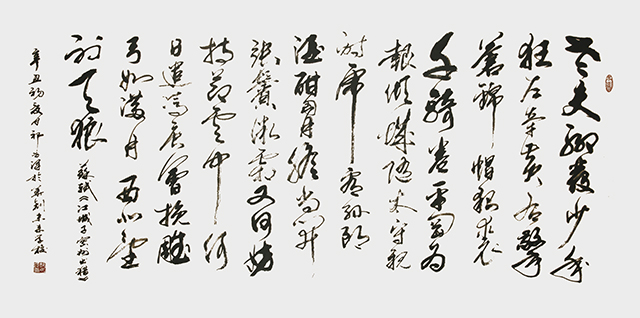 老夫聊發少年
狂左牽黃右擎
蒼錦帽貂裘
千騎卷平岡為
報傾城隨太守親
射虎看孫郎
酒酣胸膽尚開
張鬢微霜又何妨
持節雲中何
日遣馮唐會挽雕
弓如滿月西北望
射天狼
蘇軾《江城子密州出獵》
辛丑初夏